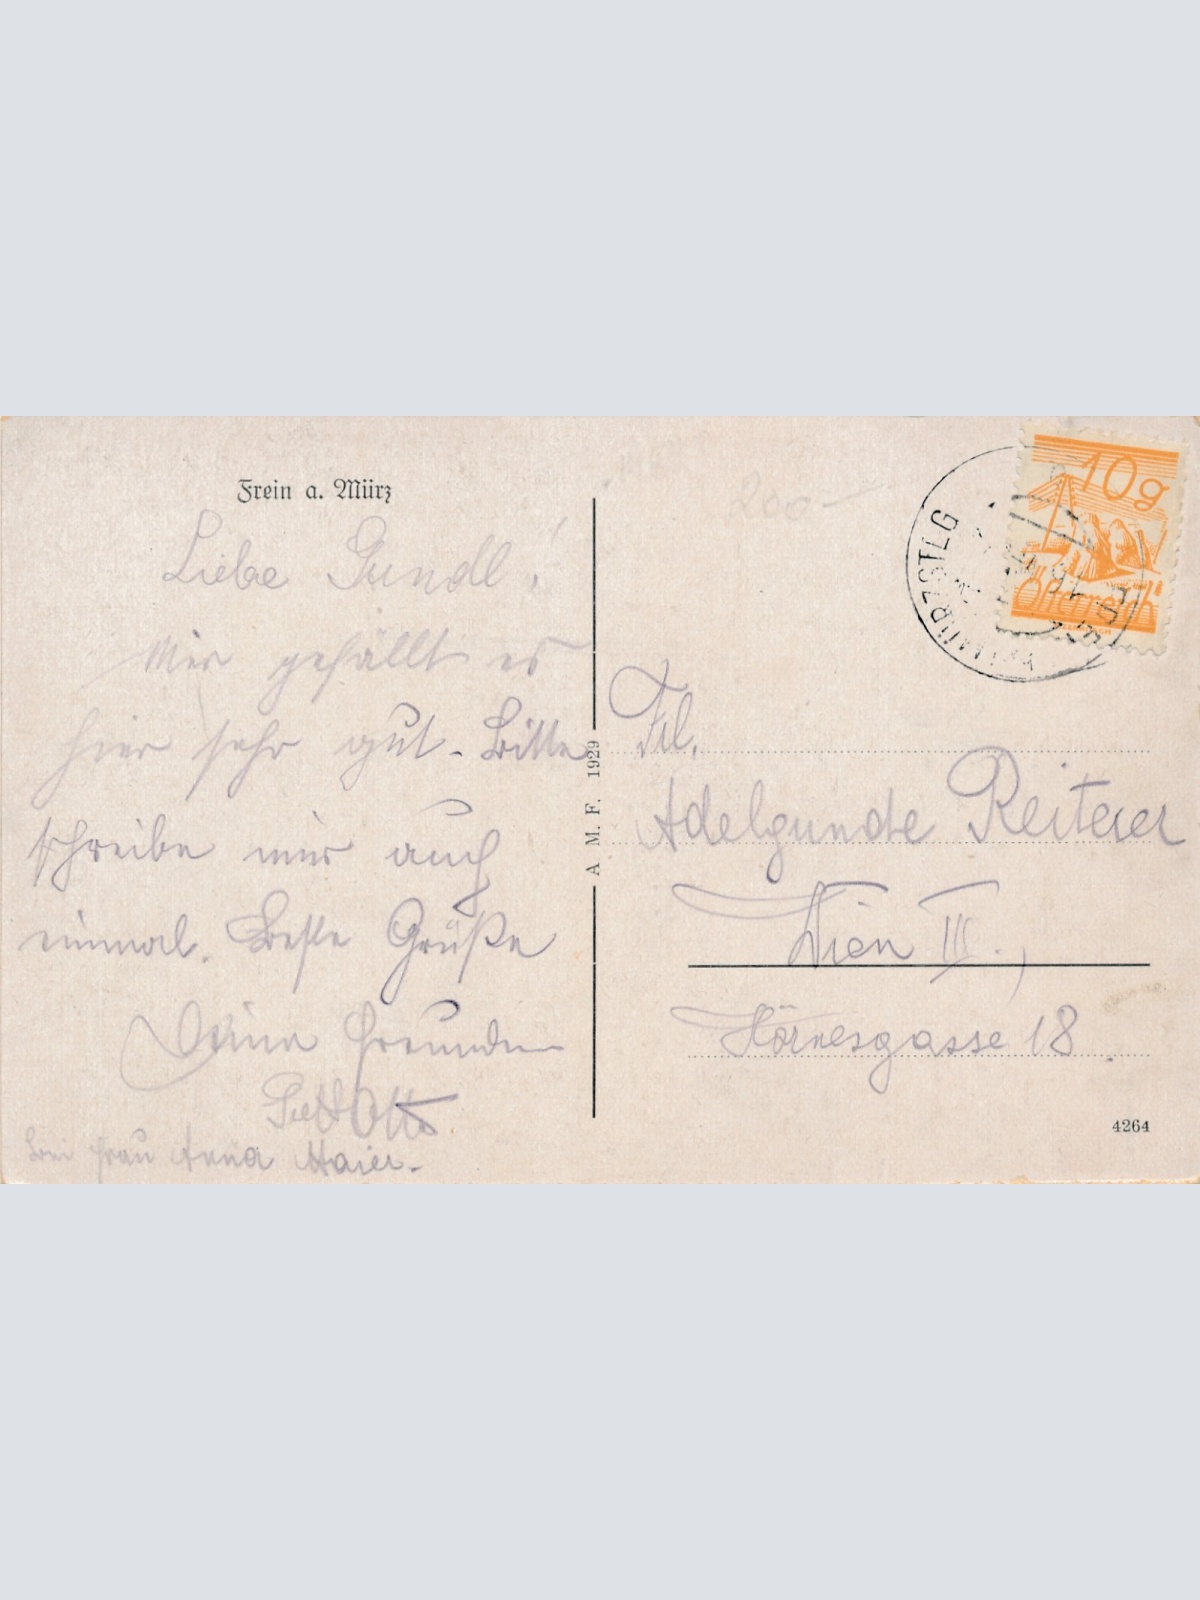 Frein a. Mürz
Liebe Gundl!
Mir gefällt es
hier sehr gut. Bitte
schreibe mir auch
einmal. Beste Grüße
Deine Freundin
bei Frau Anna Maier.
A. M. F. 1929
200.-
10g
Österreich
MÜRZSTLG
Frl.
Adelgunde Reiterer
Wien III.,
Hörnesgasse 18.
4264